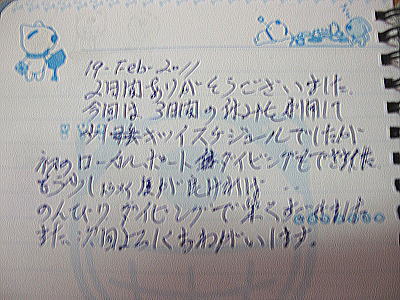 19-Feb-2011
2日間ありがとうございました。
今回は 3日間の休みを利用して
キツイスケジュールでしたが
初のローカルボートダイビングもできました
もう少し
のんびり ダイビングで楽
また次回よろしくおねがいします。